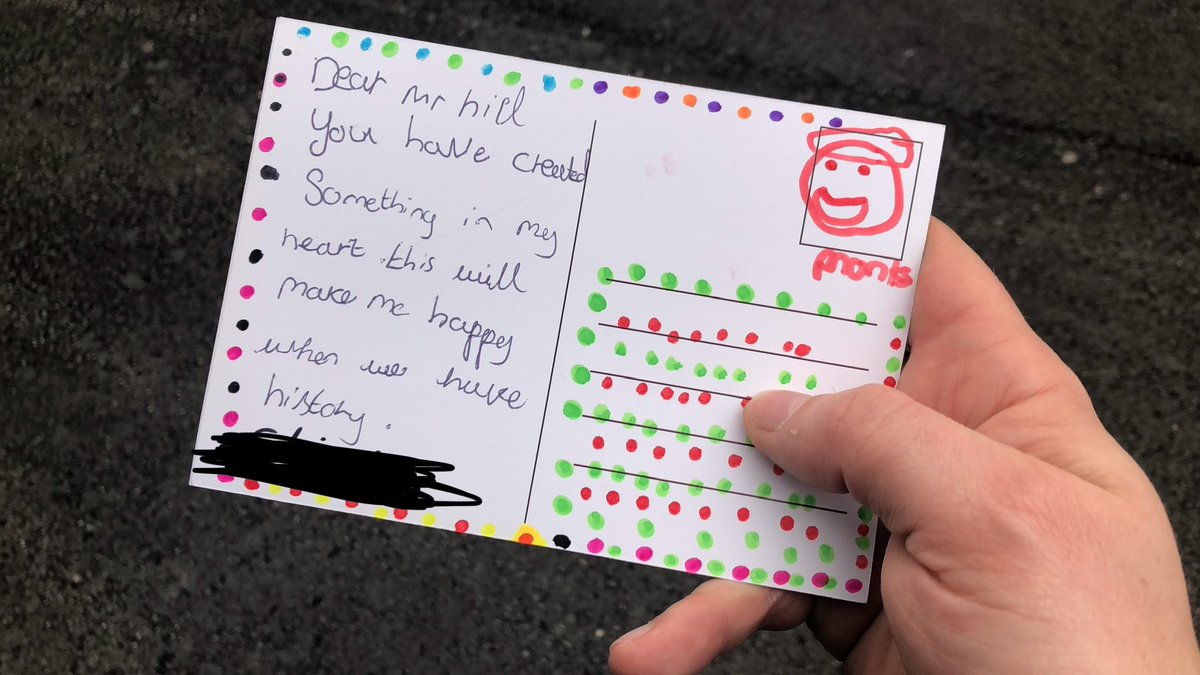 Dear Mr hill
You have created
Something in my
heart this will
make me happy
when we have
history.